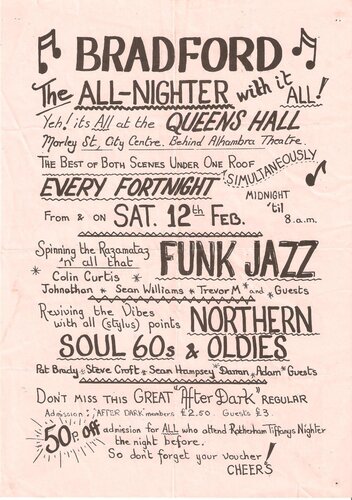 BRADFORD
The ALL-NIGHTER with it ALL!
Yeh! its All at the QUEENS HALL
Morley St, City Centre. Behind Alhambra Theatre.
THE BEST OF BOTH SCENES UNDER ONE ROOF
SIMULTANEOUSLY
EVERY FORTNIGHT
MIDNIGHT
'til
8 a.m.
FROM & ON SAT. 12th FEB.
Spinning the Razamataz
'n' all that
FUNK JAZZ
Colin Curtis *
Johnathan * Sean Williams * Trevor M * and * Guests
Reviving the Vibes
with all (stylus) points
NORTHERN
SOUL 60s & OLDIES
Pat Brady * Steve Croft * Sean Hampsey * Darran * Adam * Guests
DON'T MISS THIS GREAT "After Dark" REGULAR
Admission: 'AFTER DARK' members £2.50 Guests £3.
50p. off admission for ALL who attend Rotherham Tiffanys Nighter
the night before.
So don't forget your voucher!
CHEERS